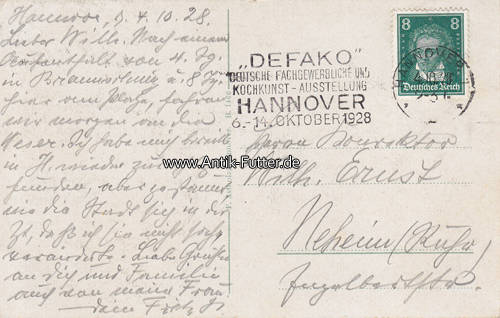 Hannover, d. 4.10.28.
Lieber Willi. Nach einem
Aufenthalt von 4 Tg.
in Braunschweig u. 8 Tg.
hier am Platze, fahren
wir morgen an die
Weser. Ich habe mich
in H. wieder
aber
die Stadt sich in der
Zt, daß ich sie nicht
Liebe Grüße
an dich und Familie
auch von meine Frau
dein Fritz
„DEFAKO"
DEUTSCHE FACHGEWERBLICHE UND
KOCHKUNST-AUSSTELLUNG
HANNOVER
6.-14. OKTOBER 1928
8 8
Deutsches Reich
HANNOVER
4.10.28
www.Antik-Futter.de
Herrn Konrektor
Wilh. Ernst
Neheim/Ruhr
Engelbertstr.